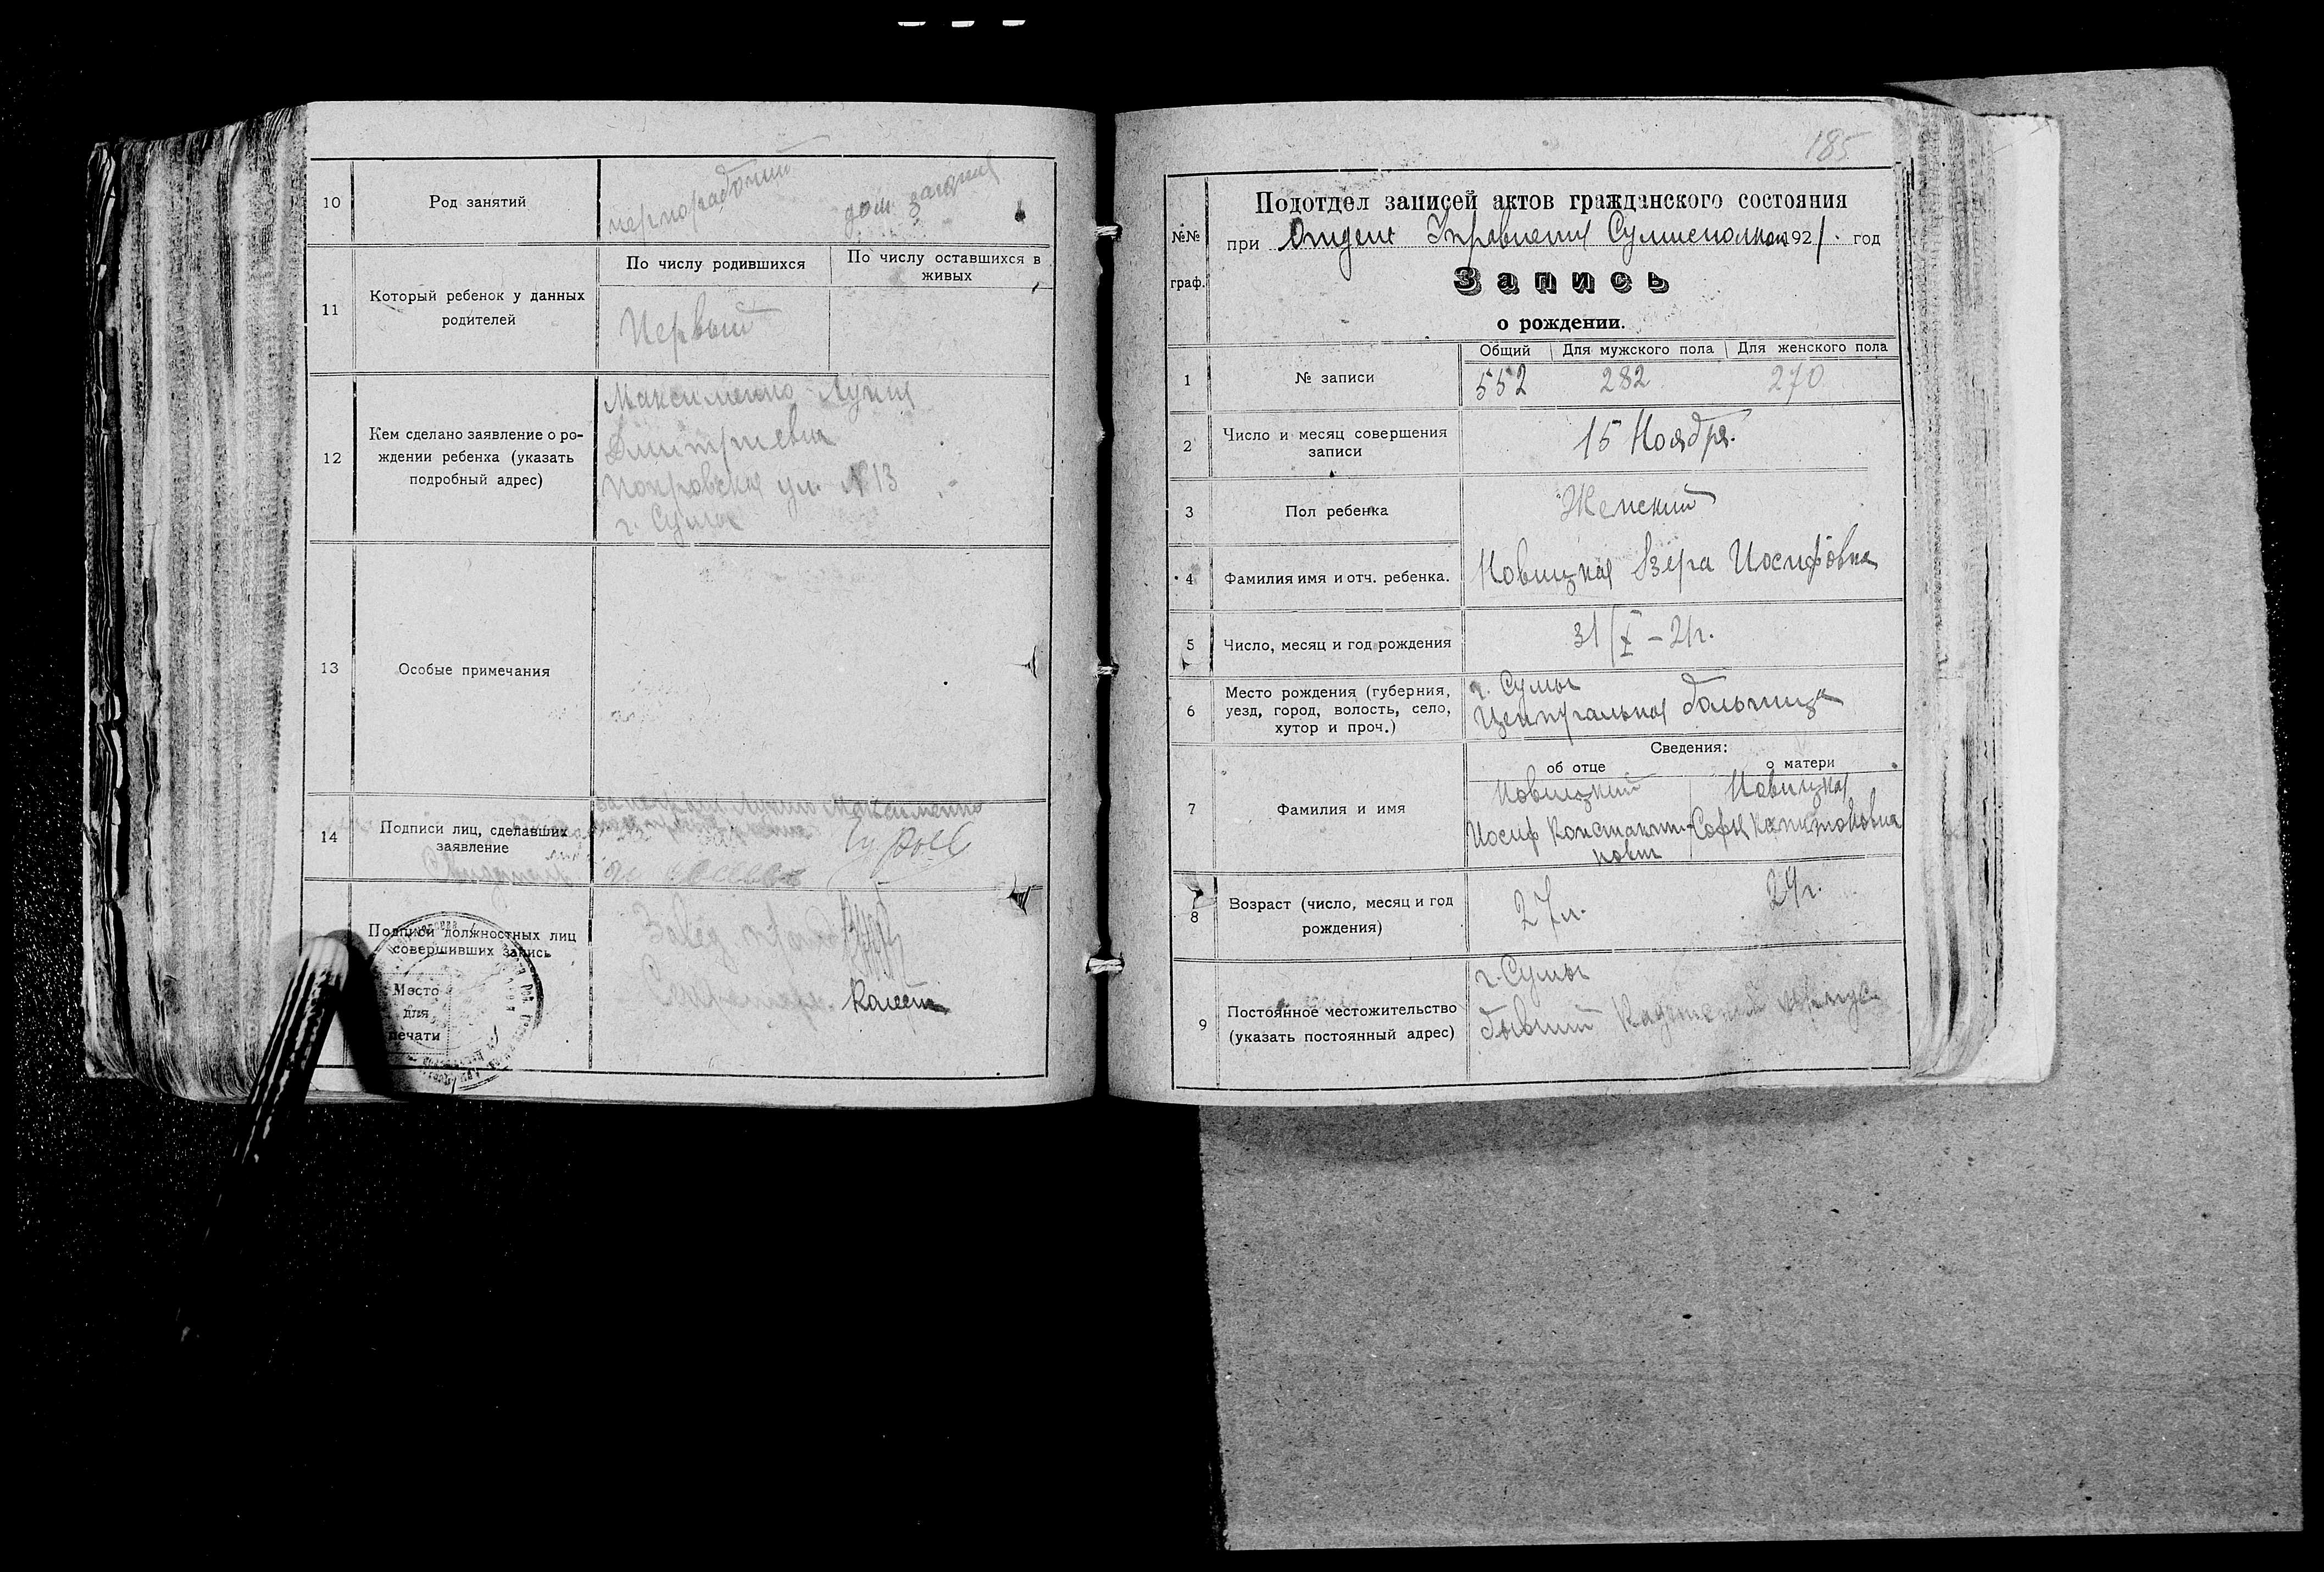 10 Род занятий чернорабочий дом. занятия
11 Который ребенок у данных родителей
По числу родившихся По числу оставшихся в живых
Первый
12 Кем сделано заявление о ро-
ждении ребенка (указать
подробный адрес)
Максименко
Дмитриевна
Покровская ул. №13
г. Сумы
13 Особые примечания
14 Подписи лиц, сделавших
заявление
Максименко
Подписи должностных лиц
совершивших запись
Завед.
Секретарь
Место
для
печати
185
№№
граф.
Подотдел записей актов гражданского состояния
при Отделе Управления 1921. год
Запись
о рождении.
1 № записи
Общий Для мужского пола Для женского пола
552 282 270
2 Число и месяц совершения
записи
15 Ноября.
3 Пол ребенка Женский
4 Фамилия имя и отч. ребенка. Новицкая Вера Иосифовна
5 Число, месяц и год рождения 31/X – 21г.
6 Место рождения (губерния,
уезд, город, волость, село,
хутор и проч.)
г. Сумы
Центральная больница
Сведения:
об отце о матери
7 Фамилия и имя
Новицкий Новицкая
Иосиф Константи- Софья Капитоновна
нович
8 Возраст (число, месяц и год
рождения)
27л. 24г.
9 Постоянное местожительство
(указать постоянный адрес)
г. Сумы
бывший Кадетский корпус